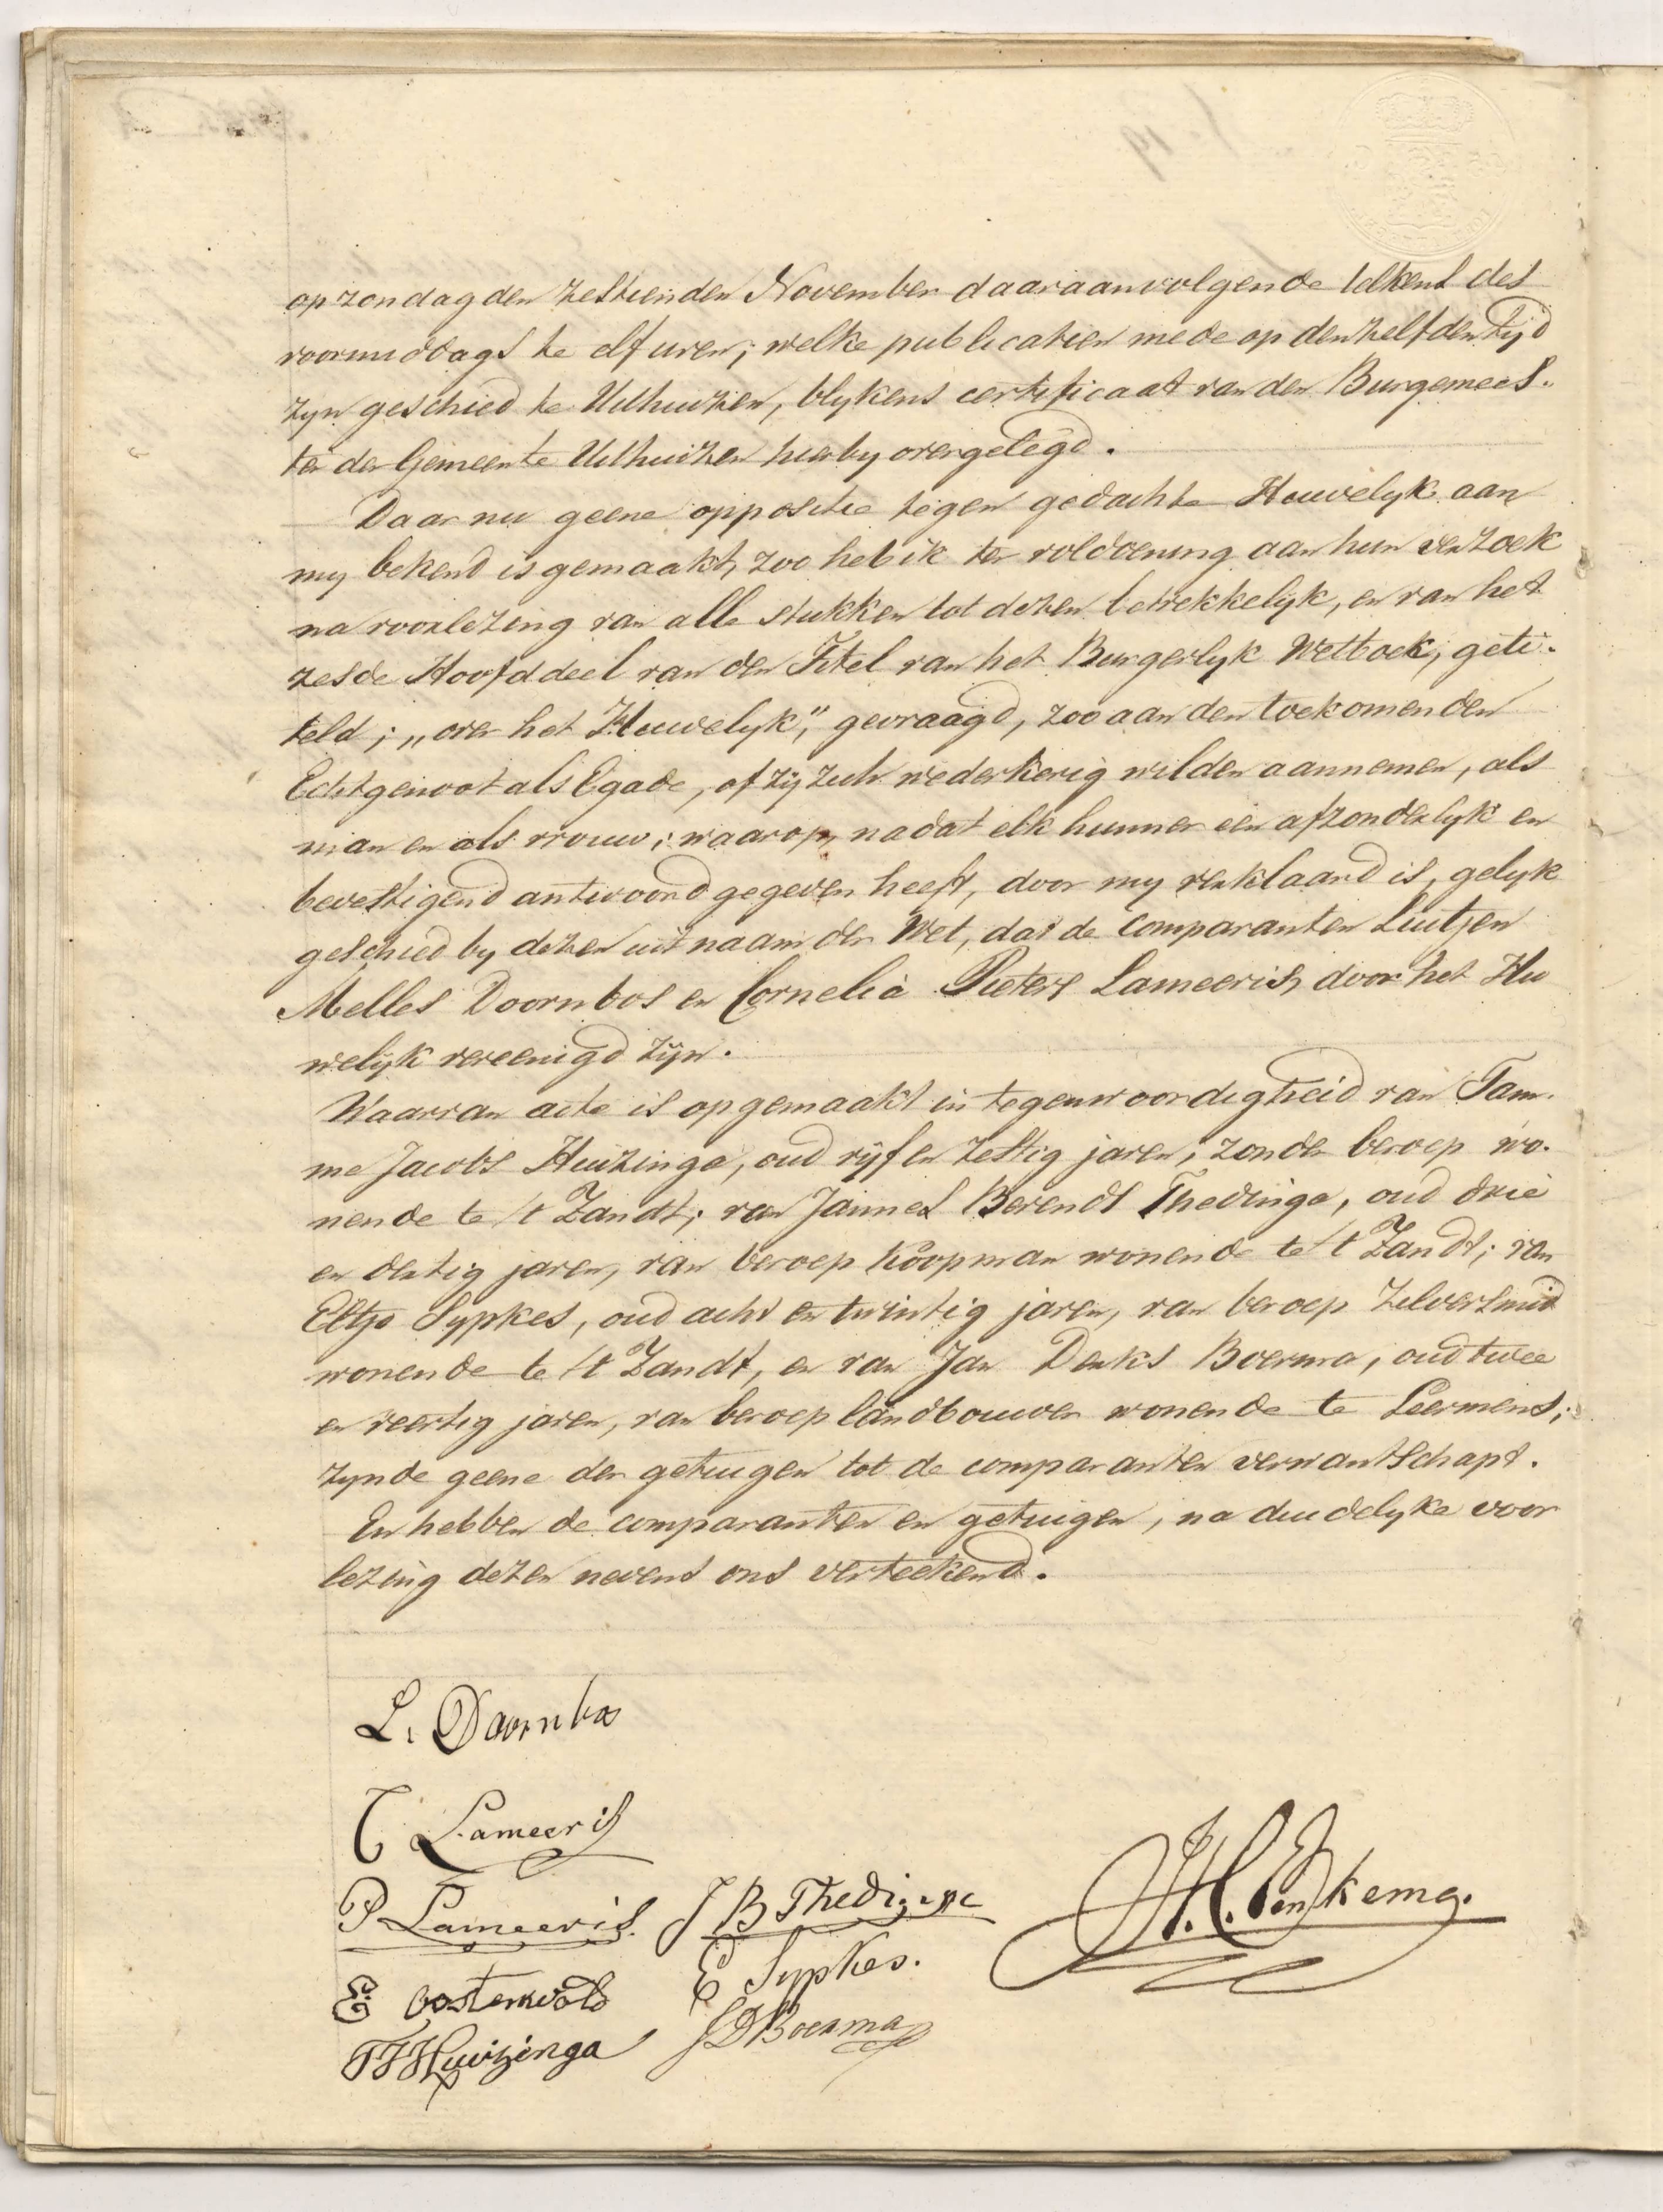 op zondag den zestienden November daaraanvolgende telkens des
voormiddags te elf uren; welke publicatien mede op denzelfden tijd
zyn geschied te Uithuizen, blykens certificaat van den Burgemees-
ter der Gemeente Uithuizen hierby overgelegd.
Daar nu geene oppositie tegen gedachte Huwelyk aan
my bekend is gemaakt, zoo heb ik ter voldoening aan hun verzoek
na voorlezing van alle stukken tot dezen betrekkelijk, en van het
zesde Hoofddeel van den Titel van het Burgerlyk Wetboek; geti-
teld; „over het Huwelyk", gevraagd, zoo aan den toekomenden
Echtgenoot als Egade, of zij zich wederkerig wilden aannemen, als
man en als vrouw; waarop, nadat elk hunner een afzonderlyk en
bevestigend antwoord gegeven heeft, door my verklaard is, gelyk
geschied by dezen uit naam der Wet, dat de Comparanten Luitjen
Melles Doornbos en Cornelia Pieters Lameeris, door het Hu
welijk vereenigd zijn.
Waarvan acte is opgemaakt in tegenwoordigheid van Tam-
me Jacobs Huizinga, oud vijf en zestig jaren, zonder beroep wo-
nende te 't Zandt; van Jannes Berends Thedinga, oud drie
en dertig jaren, van beroep Koopman wonende te 't Zandt; van
Eltje Sypkes, oud acht en twintig jaren, van beroep Zilversmid
wonende te 't Zandt, en van Jan Derks Boerma, oud twee
en veertig jaren, van beroep landbouwer wonende te Leermens;
zynde geene der getuigen tot de comparanten verwantschapt.
En hebben de comparanten en getuigen, na duidelyke voor
lezing dezen nevens ons verteekend.
L. Doornbos
C Lameeris
P Lameeris. J B Thedinga
E Oosterwold E Sypkes.
T J Huizinga J D Boerma